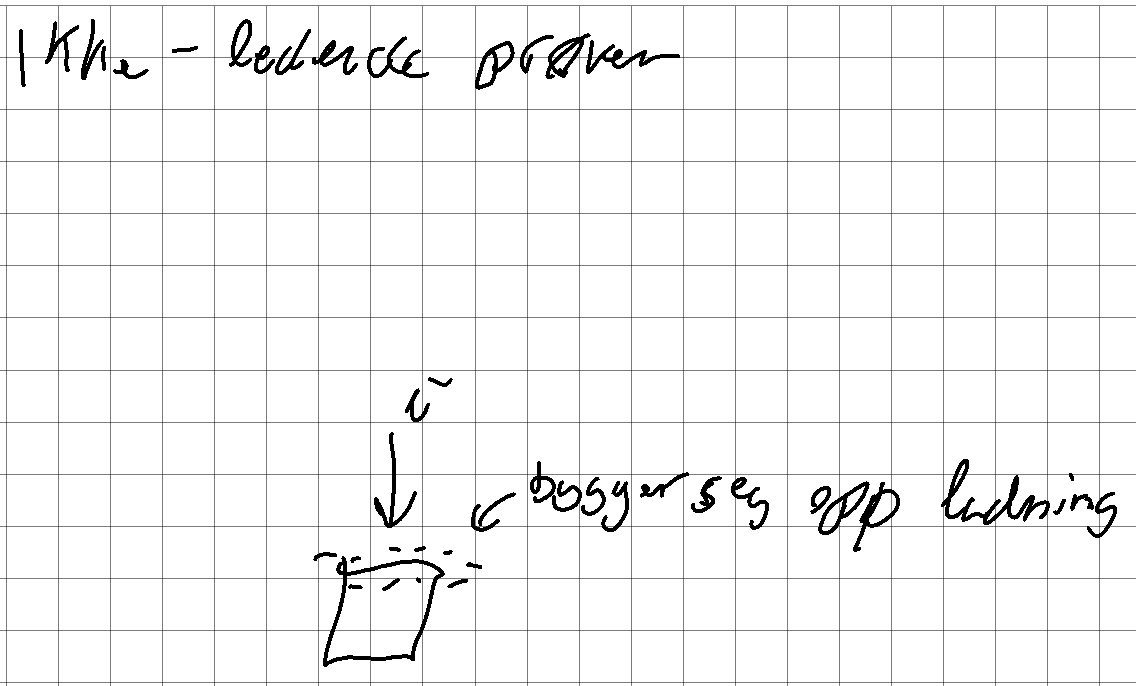 Ikke-ledende prøver
e⁻
bygger seg opp ladning